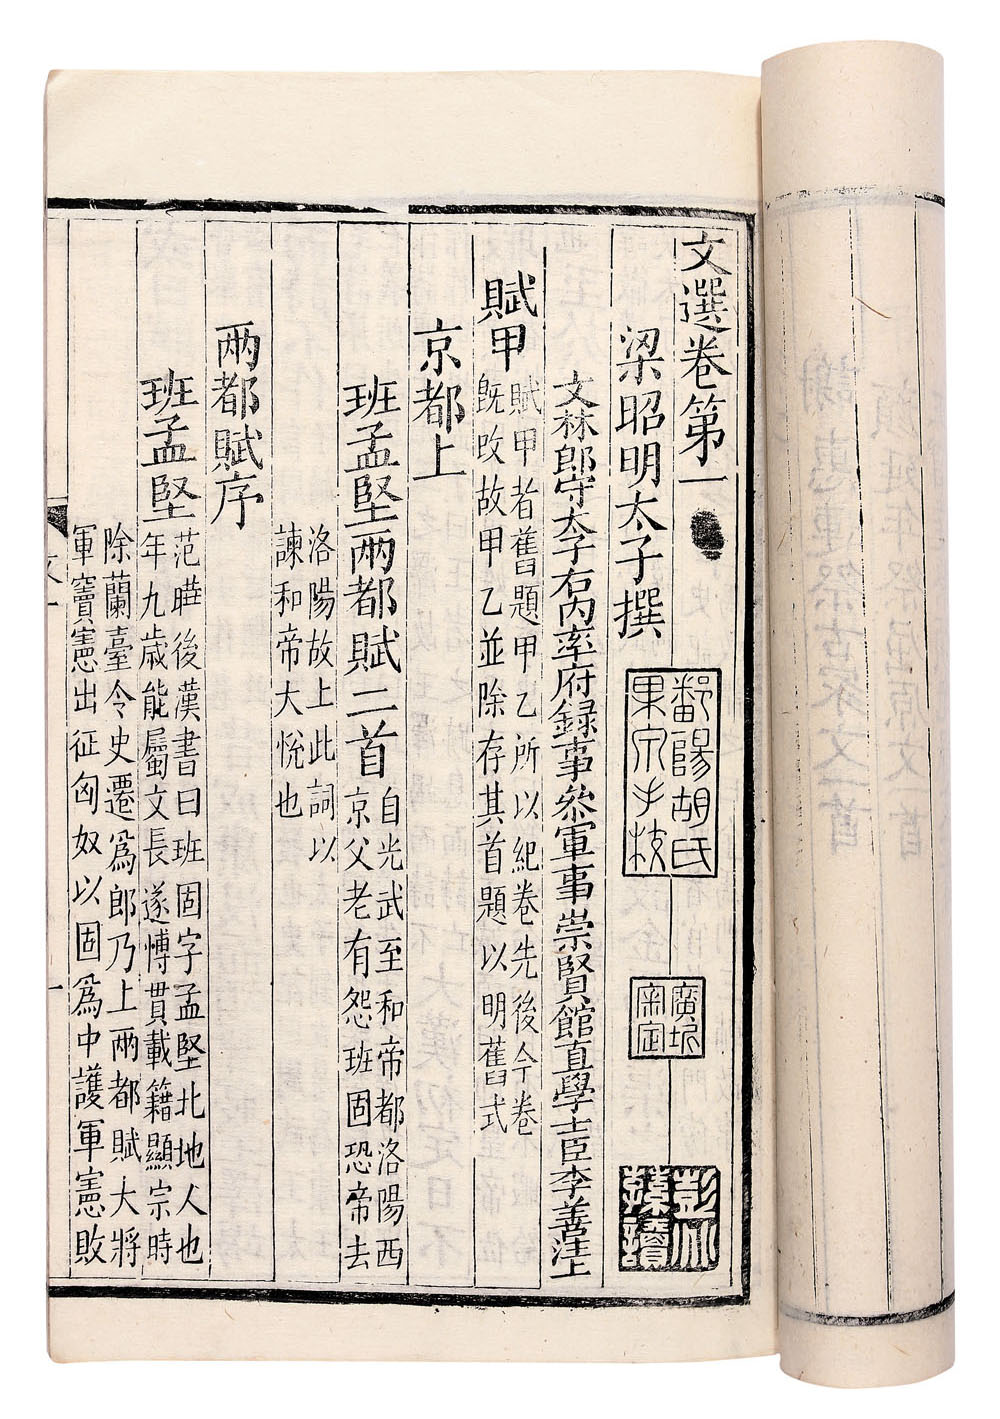 文選卷第一
梁昭明太子撰
鄱陽胡氏
果泉手校
廣圻
審定
彭
文林郎守太子右內率府錄事參軍事崇賢館直學士臣李善注上
賦甲
賦甲者舊題甲乙所以紀卷先後今卷
既改故甲乙並除存其首題以明舊式
京都上
班孟堅兩都賦二首
自光武至和帝都洛陽西
京父老有怨班固恐帝去
洛陽故上此詞以
諫和帝大悅也
兩都賦序
班孟堅
范曄後漢書曰班固字孟堅北地人也
年九歲能屬文長遂博貫載籍顯宗時
除蘭臺令史遷為郎乃上兩都賦大將
軍竇憲出征匈奴以固為中護軍憲敗
文一
一